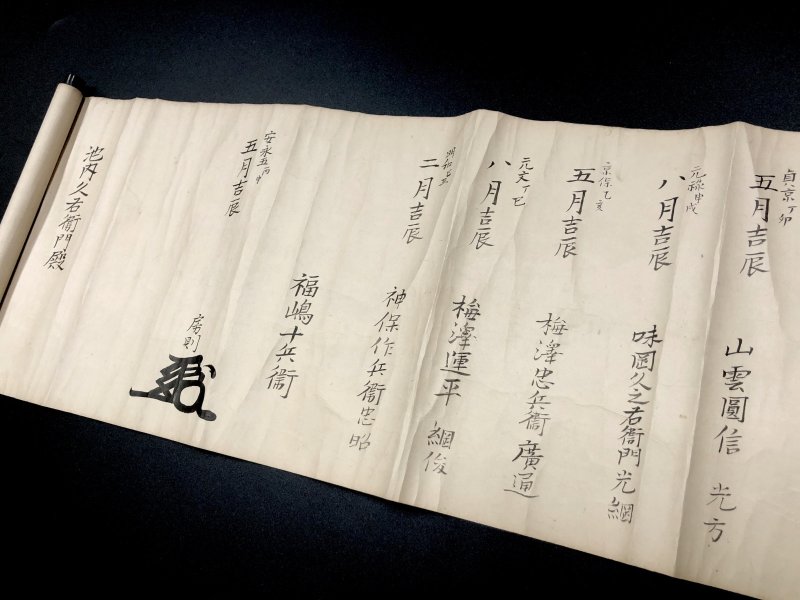 貞京丁卯
五月吉辰
山雲圓信 光方
元禄甲戌
八月吉辰
味岡久之右衛門光綱
京保乙亥
五月吉辰
梅澤忠兵衛廣通
元文丁巳
八月吉辰
梅澤運平 綱俊
明和
二月吉辰
神保作兵衛忠昭
安永五丙申
五月吉辰
福嶋十兵衛
房則
池内久右衛門殿